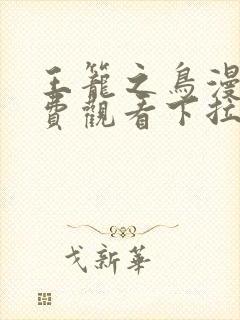 王籠之鳥漫
費觀看下拉
戈新華